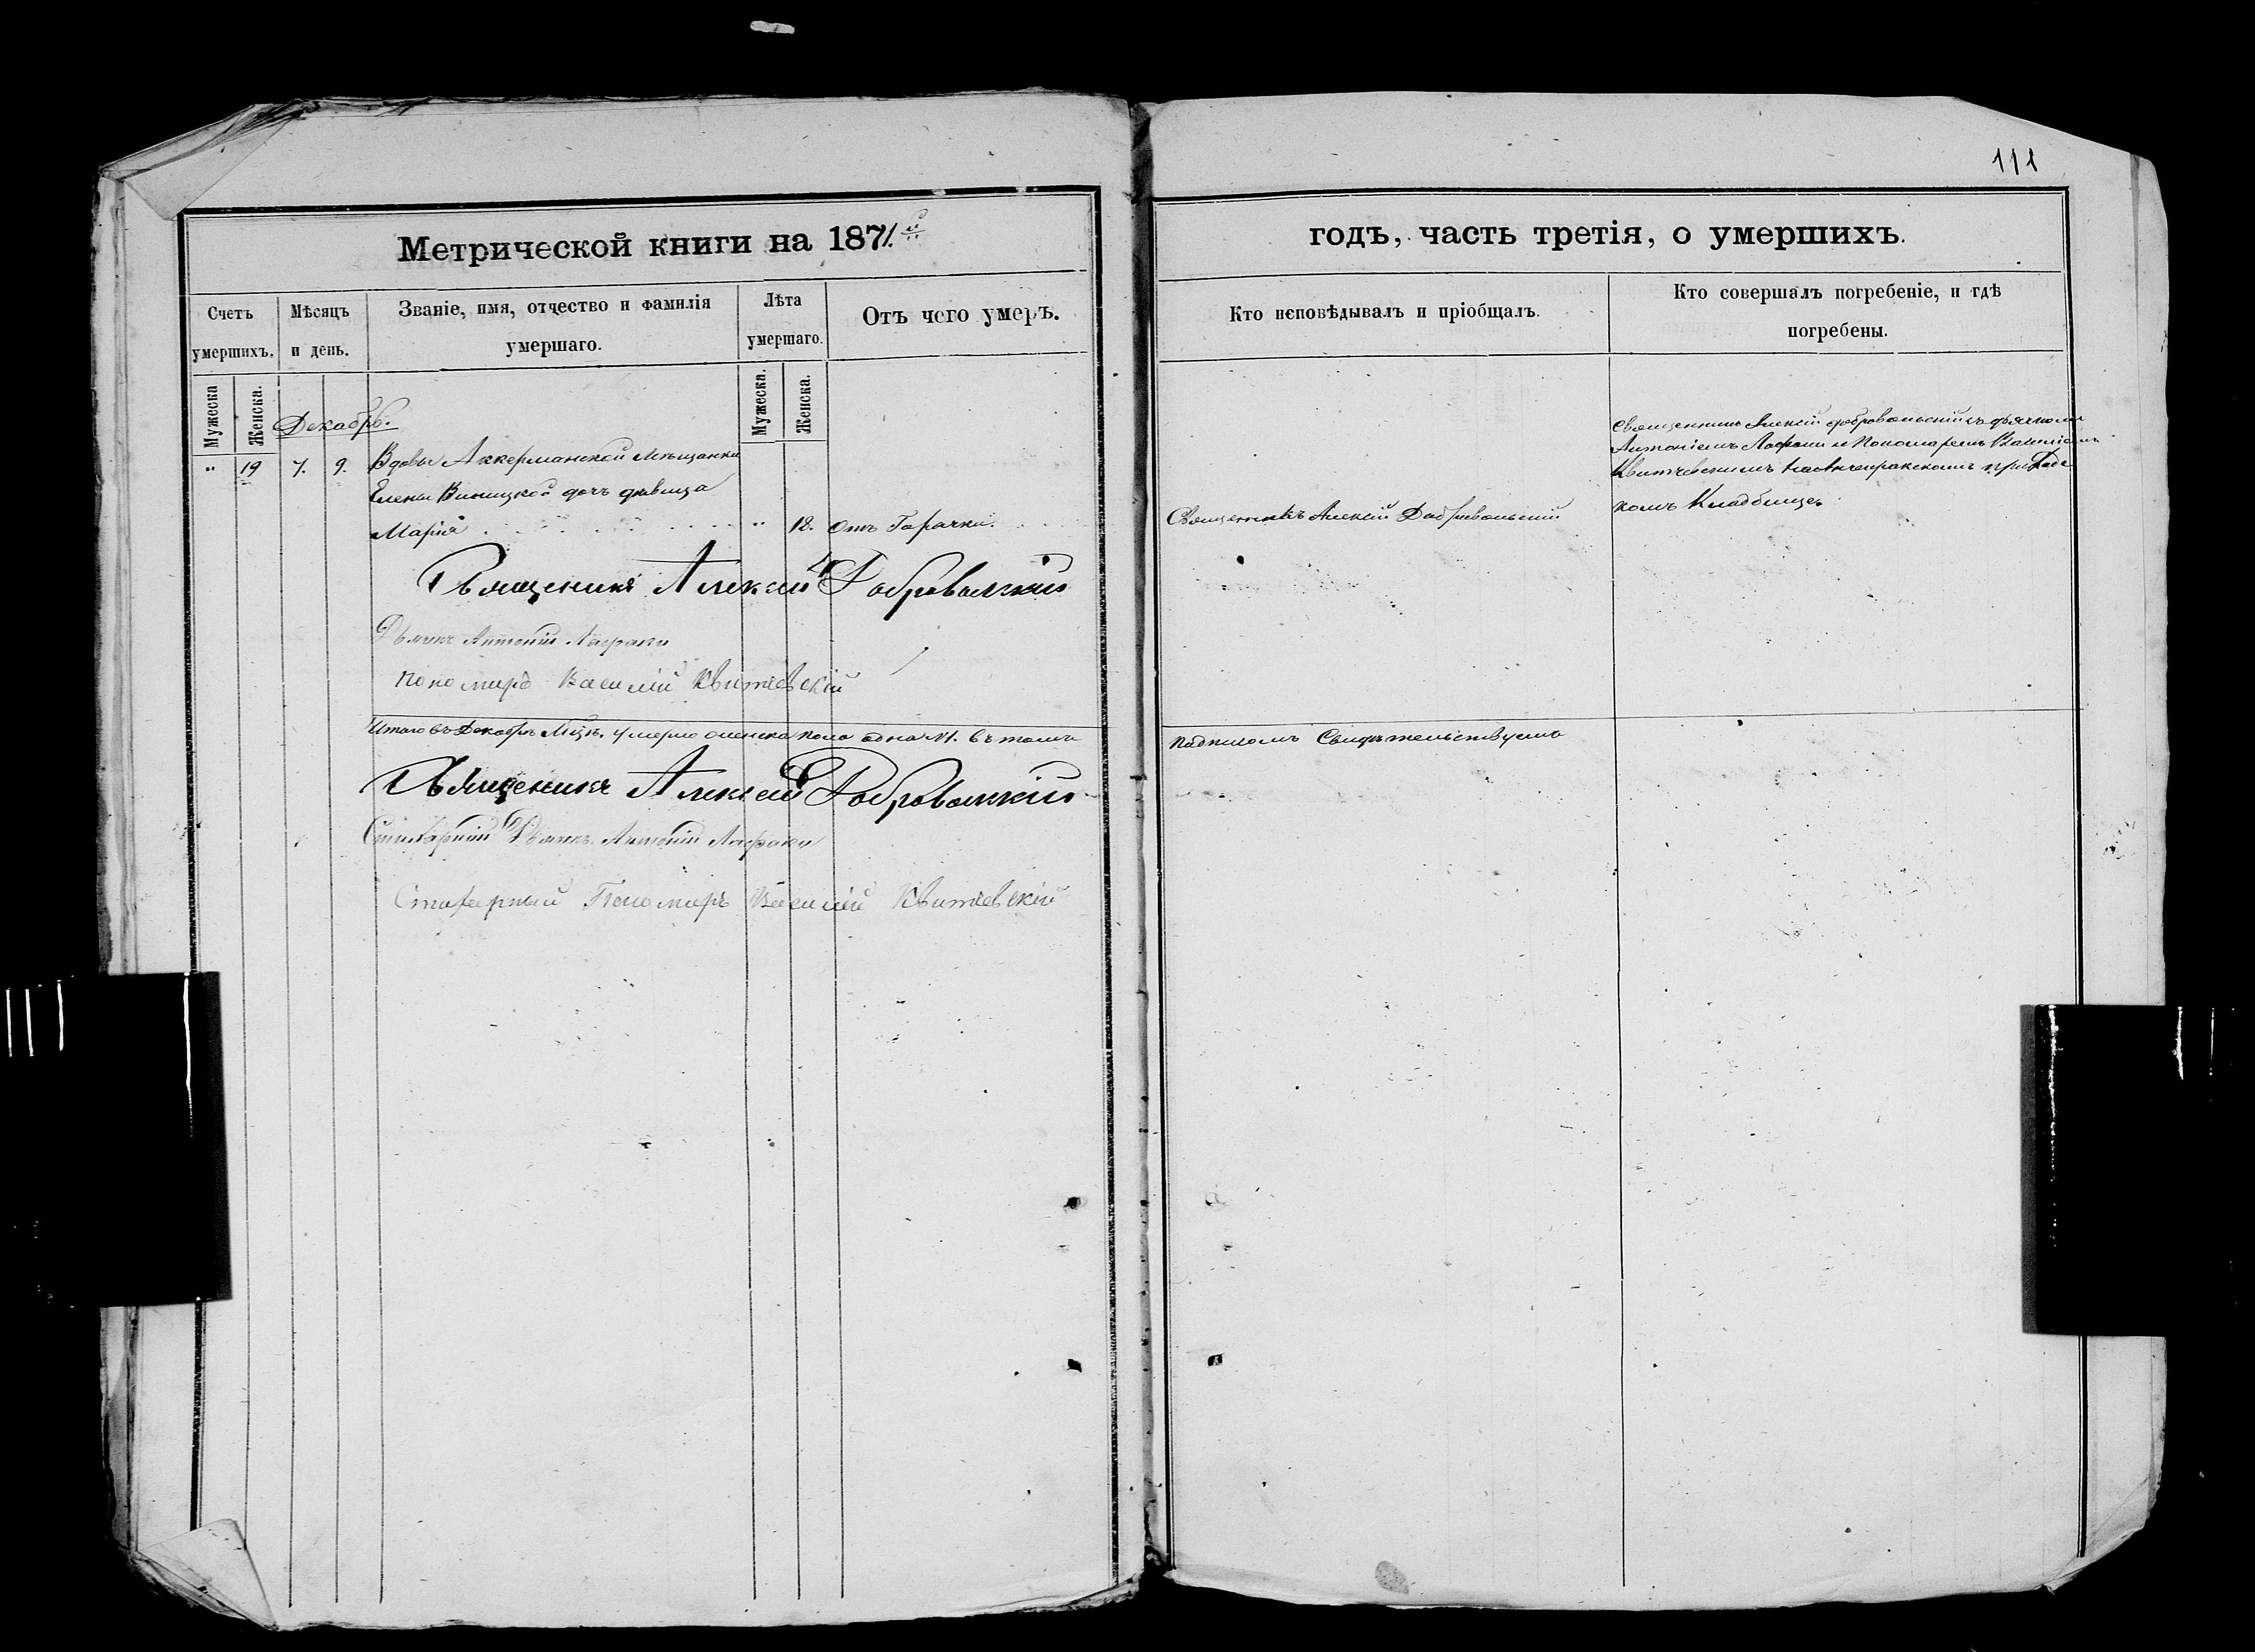 111
Метрической книги на 1871.й
годъ, часть третія, о умершихъ.
Счетъ умершихъ.
Мѣсяцъ и день.
Званіе, имя, отчество и фамилія умершаго.
Лѣта умершаго.
Отъ чего умеръ.
Кто исповѣдывалъ и пріобщалъ.
Кто совершалъ погребеніе, и гдѣ погребены.
Мужеска
Женска.
Мужеска.
Женска.
Декабрь.
" 19 7. 9. Вдовы Аккерманской мѣщанки
Елены Виницкой дочь дѣвица
Марія " 18. Отъ Горячки.
Священникъ Алексій Добровольскій
Священникъ Алексій Добровольскій съ дьячкомъ
Антоніемъ Лафаки и Пономаремъ Василіемъ
Квитчевскимъ на приход
комъ Кладбище.
Священникъ Алексій Добровольскій
Дьячекъ Антоній Лафаки
Пономарь Василій Квитчевскій
Итого въ Декабрѣ Мцѣ. умерло женска пола одна №1. въ томъ
подписомъ Свидѣтельствуемъ
Священникъ Алексій Добровольскій
Стихарный Дьячекъ Антоній Лафаки
Стихарный Пономарь Василій Квитчевскій